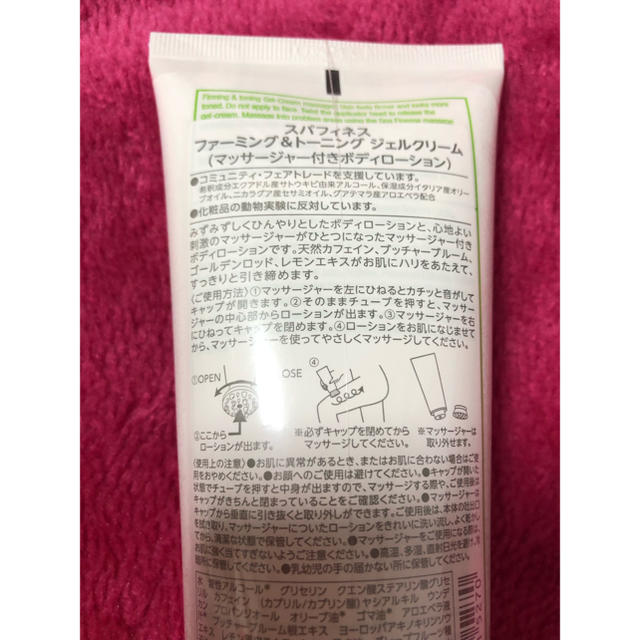 Firming & toning Gel-Cream massager. Skin feels firmer and looks more
toned. Do not apply to face. Twist the applicator head to release the
gel-cream. Massage into problem areas using the Spa Finesse massage
スパフィネス
ファーミング&トーニング ジェルクリーム
(マッサージャー付きボディローション)
●コミュニティ・フェアトレードを支援しています。
希釈成分エクアドル産サトウキビ由来アルコール、保湿成分イタリア産オリー
ブオイル、ニカラグア産セサミオイル、グアテマラ産アロエベラ配合
●化粧品の動物実験に反対しています。
みずみずしくひんやりとしたボディローションと、心地よい
刺激のマッサージャーがひとつになったマッサージャー付き
ボディローションです。天然カフェイン、ブッチャーブルーム、
ゴールデンロッド、レモンエキスがお肌にハリをあたえて、
すっきりと引き締めます。
〈ご使用方法〉①マッサージャーを左にひねるとカチッと音がして
キャップが開きます。②そのままチューブを押すと、マッサー
ジャーの中心部からローションが出ます。③マッサージャーを右
にひねってキャップを閉めます。④ローションをお肌になじませて
から、マッサージャーを使ってやさしくマッサージしてください。
①OPEN
OSE
④
②ここから
ローションが出ます。
※必ずキャップを閉めてから
マッサージしてください。
※マッサージャーは
取り外せます。
〈使用上の注意〉●お肌に異常があるとき、またはお肌に合わない場合はご使
用をおやめください。●お顔へのご使用は避けてください。●キャップが開いた
状態でチューブを押すと中身が出ますので、マッサージする際や、ご使用後は
キャップがきちんと閉まっていることをご確認ください。●マッサージャーは
キャップから垂直に引き抜くと取り外しができます。ご使用後は、本体の吐出口
を拭き取り、マッサージャーについたローションをきれいに洗い流し、よく乾かし
てから、清潔な状態で保管してください。●マッサージャーをご使用になる際は、
お肌に強く当てすぎないようご注意ください。●高温、多湿、直射日光を避け、
●乳幼児の手の届かない所に保管してください。
水 変性アルコール* グリセリン クエン酸ステアリン酸グリセ
リル カフェイン (カプリル/カプリン酸)ヤシアルキル ウンデ
カン プロパンジオール オリーブ油* ゴマ油* アロエベラ液
ブッチャーブルーム根エキス ヨーロッパアキノキリンソウ
5270